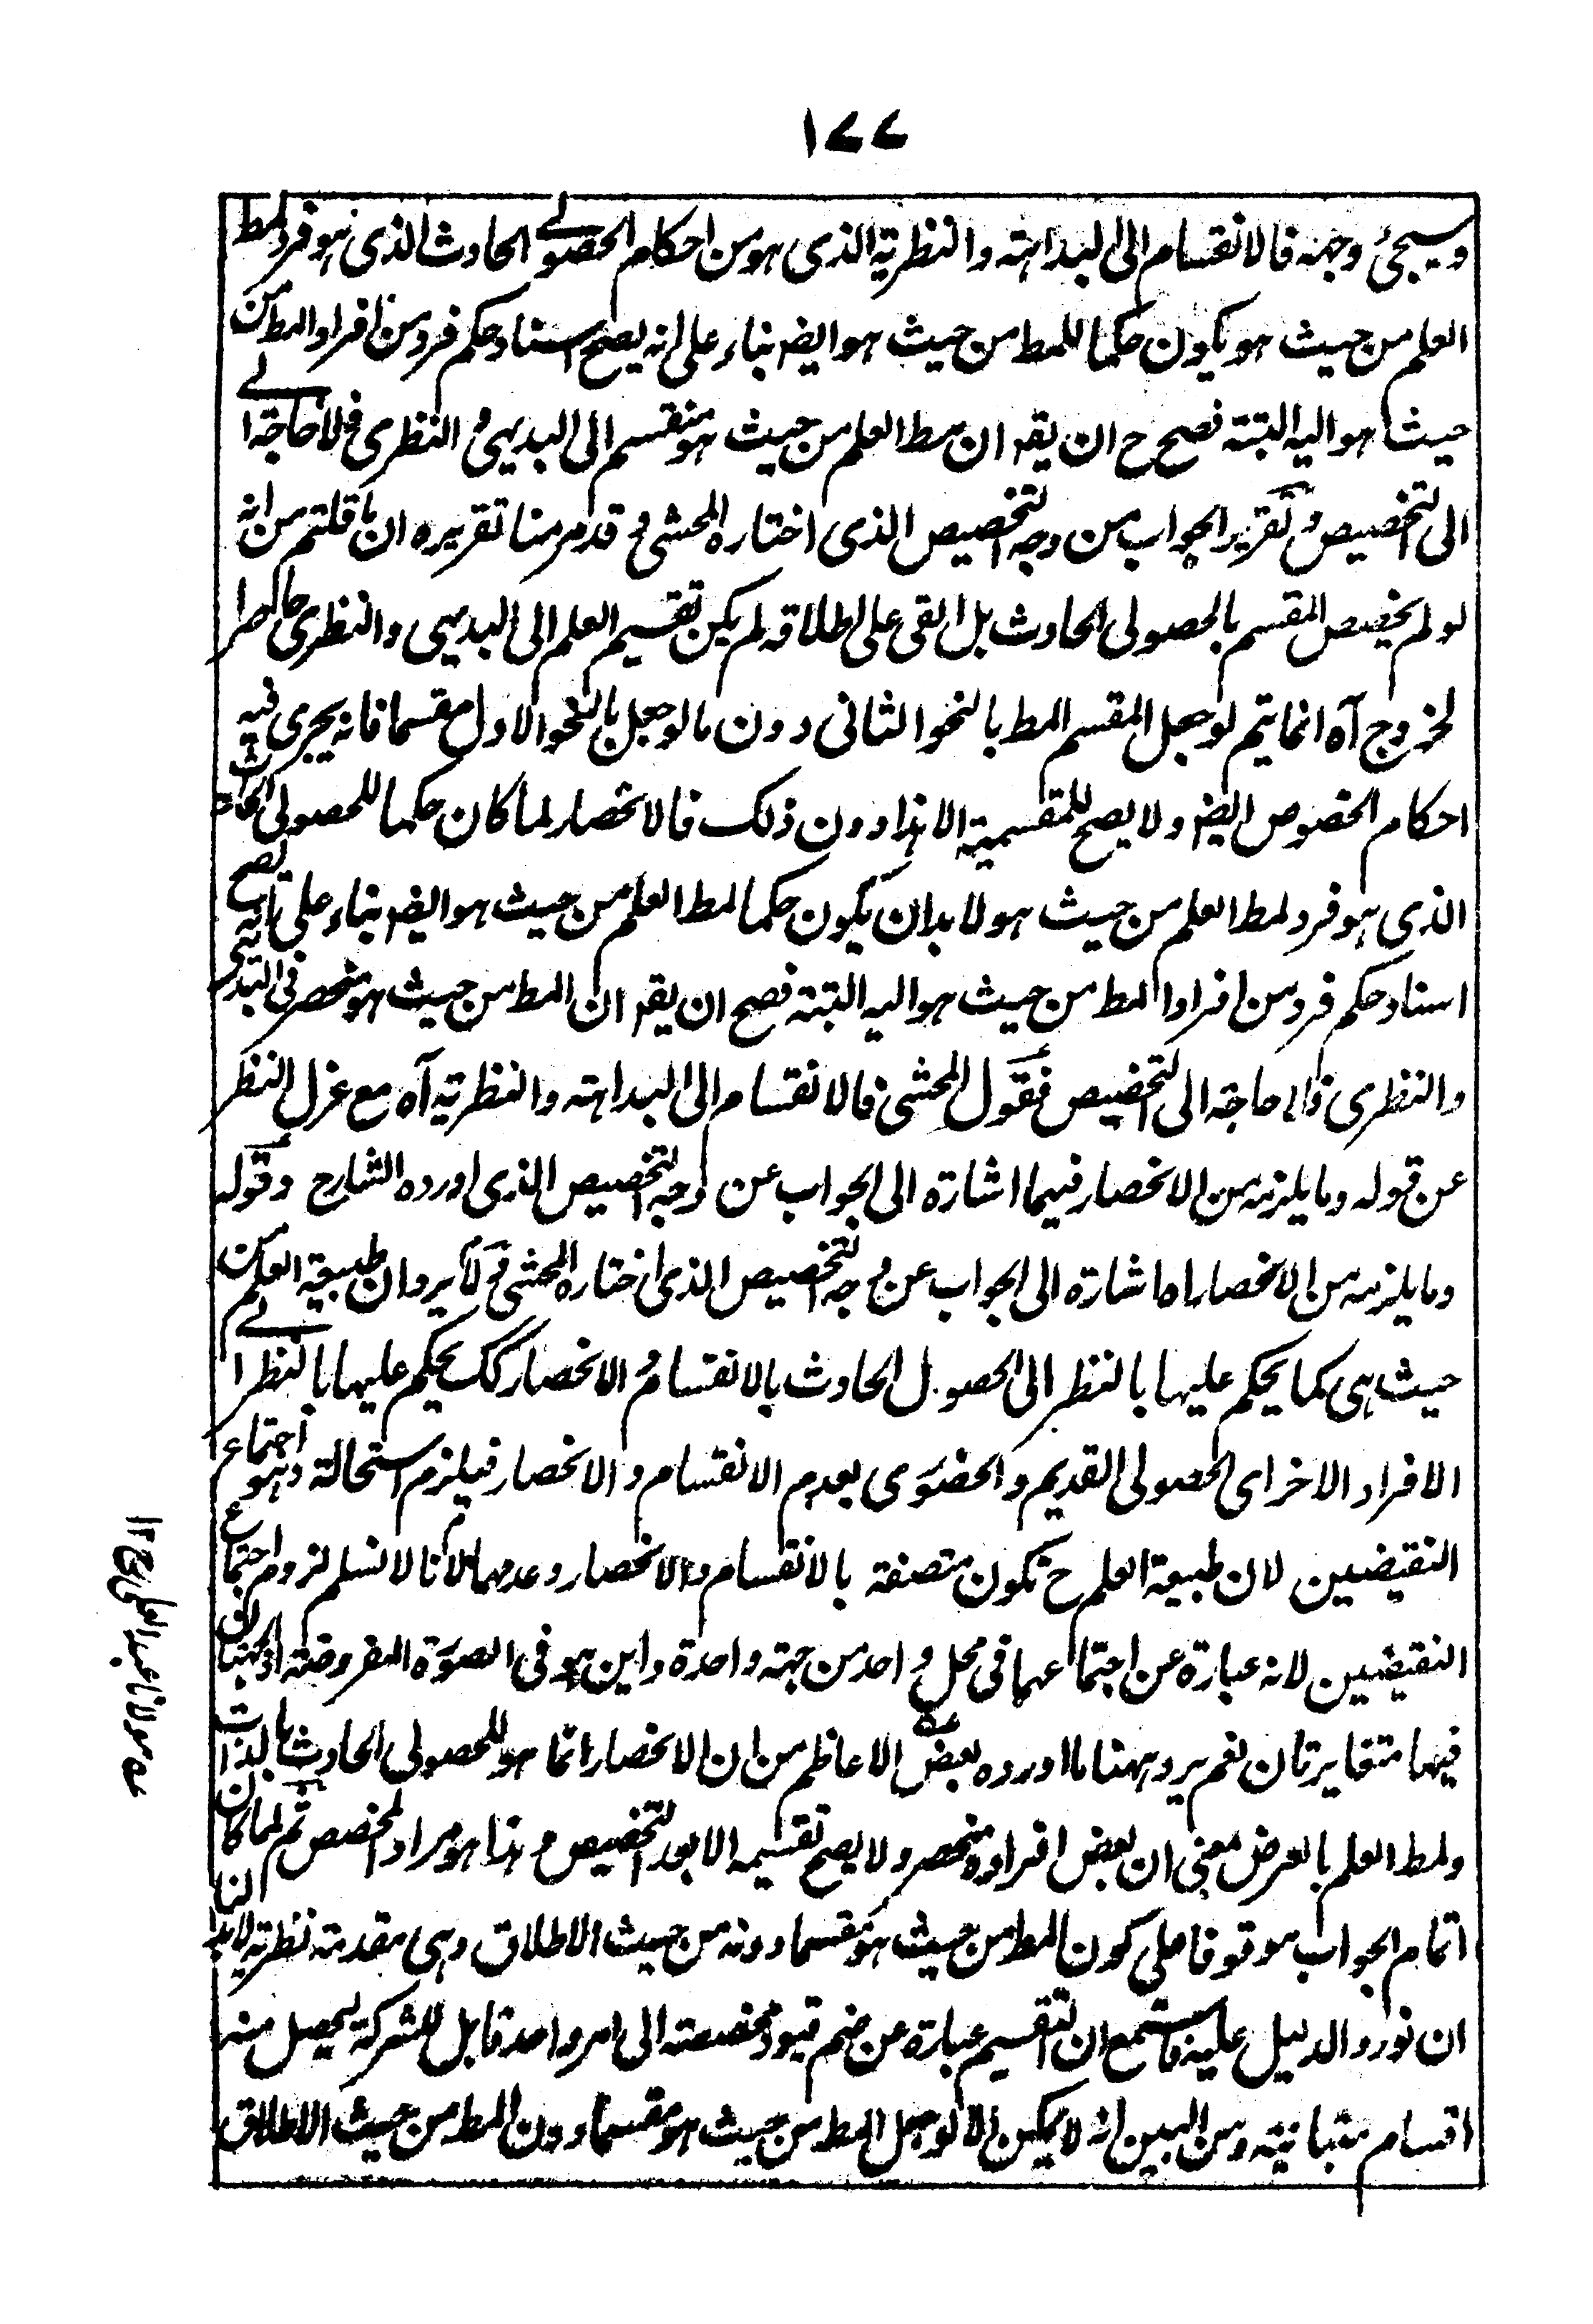 ١٧٧
وسيجئ وجهه فالانقسام الى البداهته والنظرية الذى هو من احكام الحصولے الحادث الذى هو فرد لمط
العلم من حيث هو يكون حكما للمط من حيث هو ايضه بناء على انه يصح اسناد حكم فرد من افراد المط من
حيث هو اليه البتته فصح ح ان يقہ ان مط العلم من حيث هو منقسم الى البديهى و النظرى فلا حاجة الے
الى التخصيص و تقرير الجواب من وجه التخصيص الذى اختاره المحشى و قد مر منا تقريره ان ما قلتم من انه
لو لم يخصص المقسم بالحصولى الحادث بل ابقى على اطلاقه لم يكن تقسيم العلم الى البديهى والنظرى حاصرا
لخروج آه انما يتم لو جعل المقسم المط بالنحو الثانى دون ما لو جعل بالنحو الاول مقسما فانه يجرى فيه
احكام الخصوص ايضه ولا يصح للمقسمية الا هذا دون ذلك فالانحصار لما كان حكما للحصولى الحادث
الذى هو فرد لمط العلم من حيث هو لابد ان يكون حكما لمط العلم من حيث هو ايضه بناء على انه يصح
اسناد حكم فرد من افراد المط من حيث هو اليه البتته فصح ان يقہ ان المط من حيث هو منحصر فى البديهى
والنظرى فلا حاجة الى التخصيص فقول المحشى فالانقسام الى البداهته والنظرية آه مع عزل النظر
عن قوله وما يلزمه من الانحصار فيما اشارة الى الجواب عن وجه التخصيص الذى اورده الشارح وقوله
وما يلزمه من الانحصار اه اشارة الى الجواب عن وجه التخصيص الذى اختاره المحشى و لا يرد ان طبيعة العلم من
حيث هى كما يحكم عليها بالنظر الى الحصول الحادث بالانقسام و الانحصار كك يحكم عليها بالنظر الے
الافراد الاخر اى الحصولى القديم والحضورى بعدم الانقسام و الانحصار فيلزم استحالة وهو اجتماع
النقيضين لان طبيعة العلم ح تكون متصفة بالانقسام والانحصار وعدمهما لانا لا نسلم لزوم اجتماع
النقيضين لانه عبارة عن اجتماعهما فى محل واحد من جهة واحدة واين هو فى الصورة المفروضة اذ الجهتان
فيها متغايرتان نعم يرد ههنا ما اورده بعض الاعاظم من ان الانحصار انما هو للحصولى الحادث بالذات
ولمط العلم بالعرض معنى ان بعض افراده منحصر ولا يصح تقسيمه الا بعد التخصيص و هذا هو مراد المخصص ثم لما كان
اتمام الجواب موقوفا على كون المط من حيث هو مقسما دونه من حيث الاطلاق وهى مقدمة نظرية لابد لنا
ان نورد الدليل عليه فاستمع ان التقسيم عبارة عن ضم قيود مخصصة الى امر واحد قابل للشركة ليحصل منه
اقسام متباينة ومن البين انه لا يمكن الا لو جعل المط من حيث هو مقسما دون المط من حيث الاطلاق